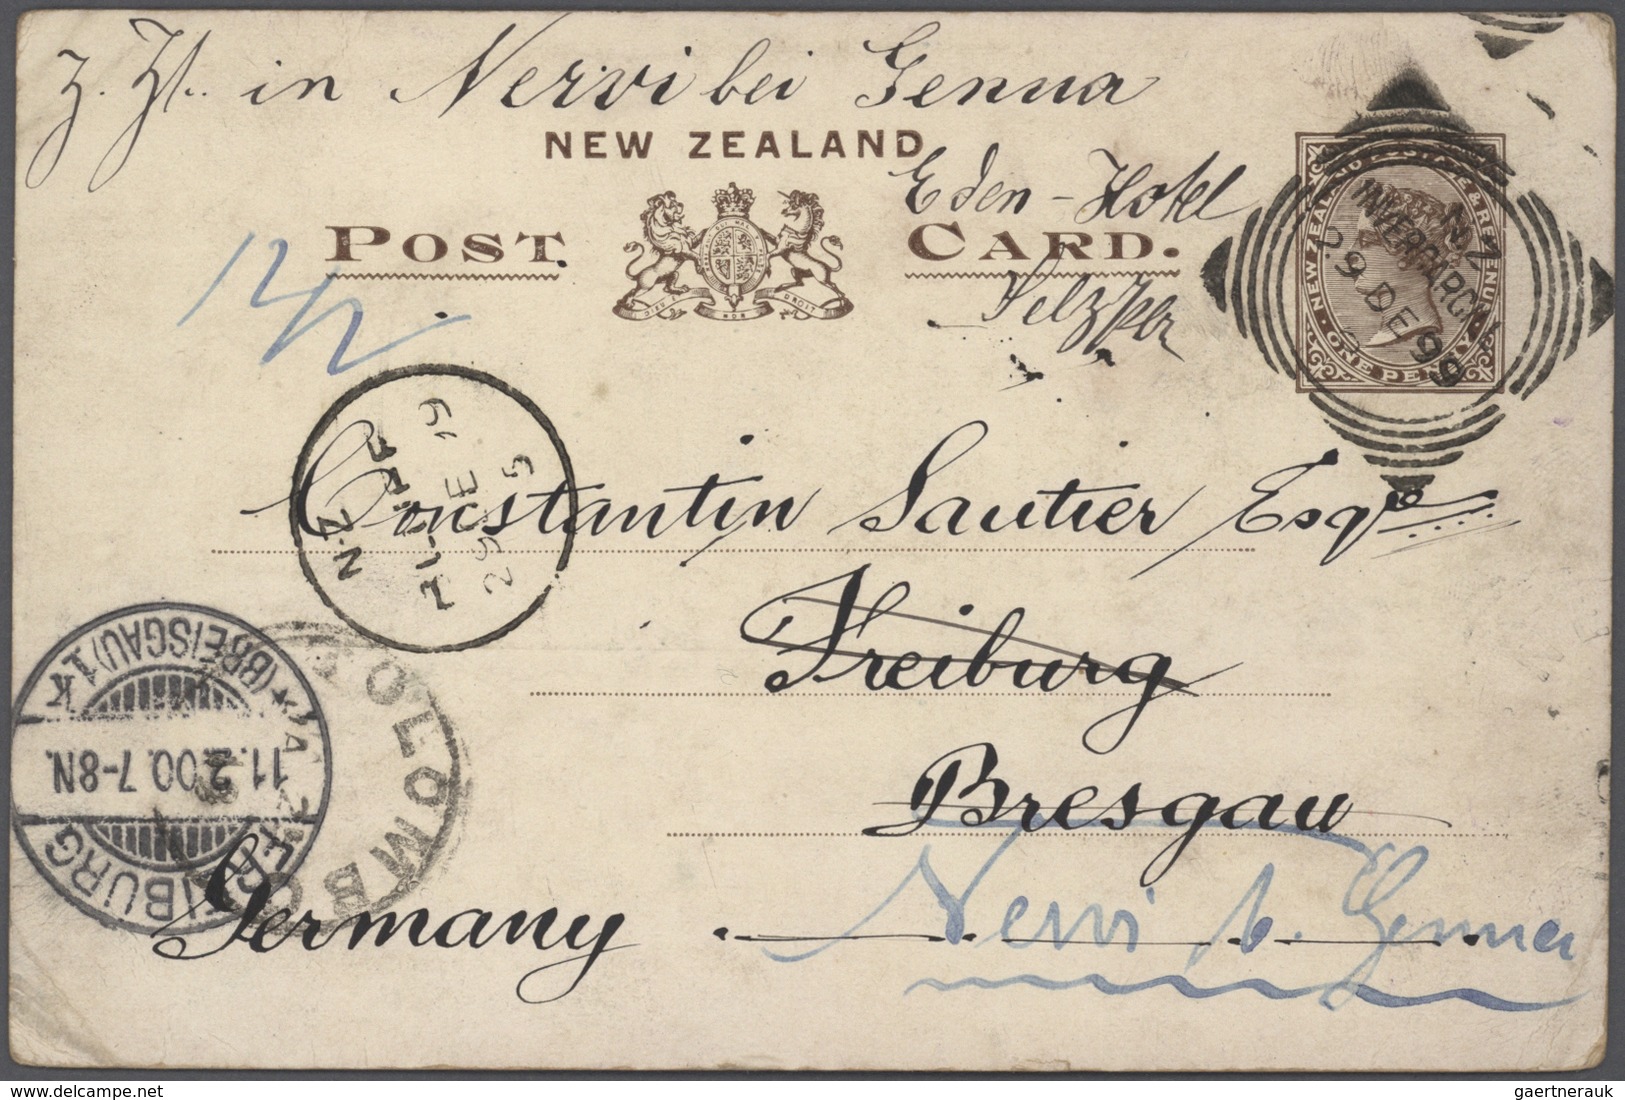 z. Zt. in Nervi bei Genua
NEW ZEALAND
Eden-Hotel
POST CARD.
12/2
NEW ZEALAND POSTAGE & REVENUE
ONE PENNY
N.Z
INVERCARGILL
29 DE 99
N.Z
29 DE
Constantin Sautier Esqre
Freiburg
Bresgau
Germany
Nervi b. Genua
COLOMBO
FREIBURG
(BREISGAU) 1
K
11.2.00.7-8N.
www.delcampe.net
gaertnerauk